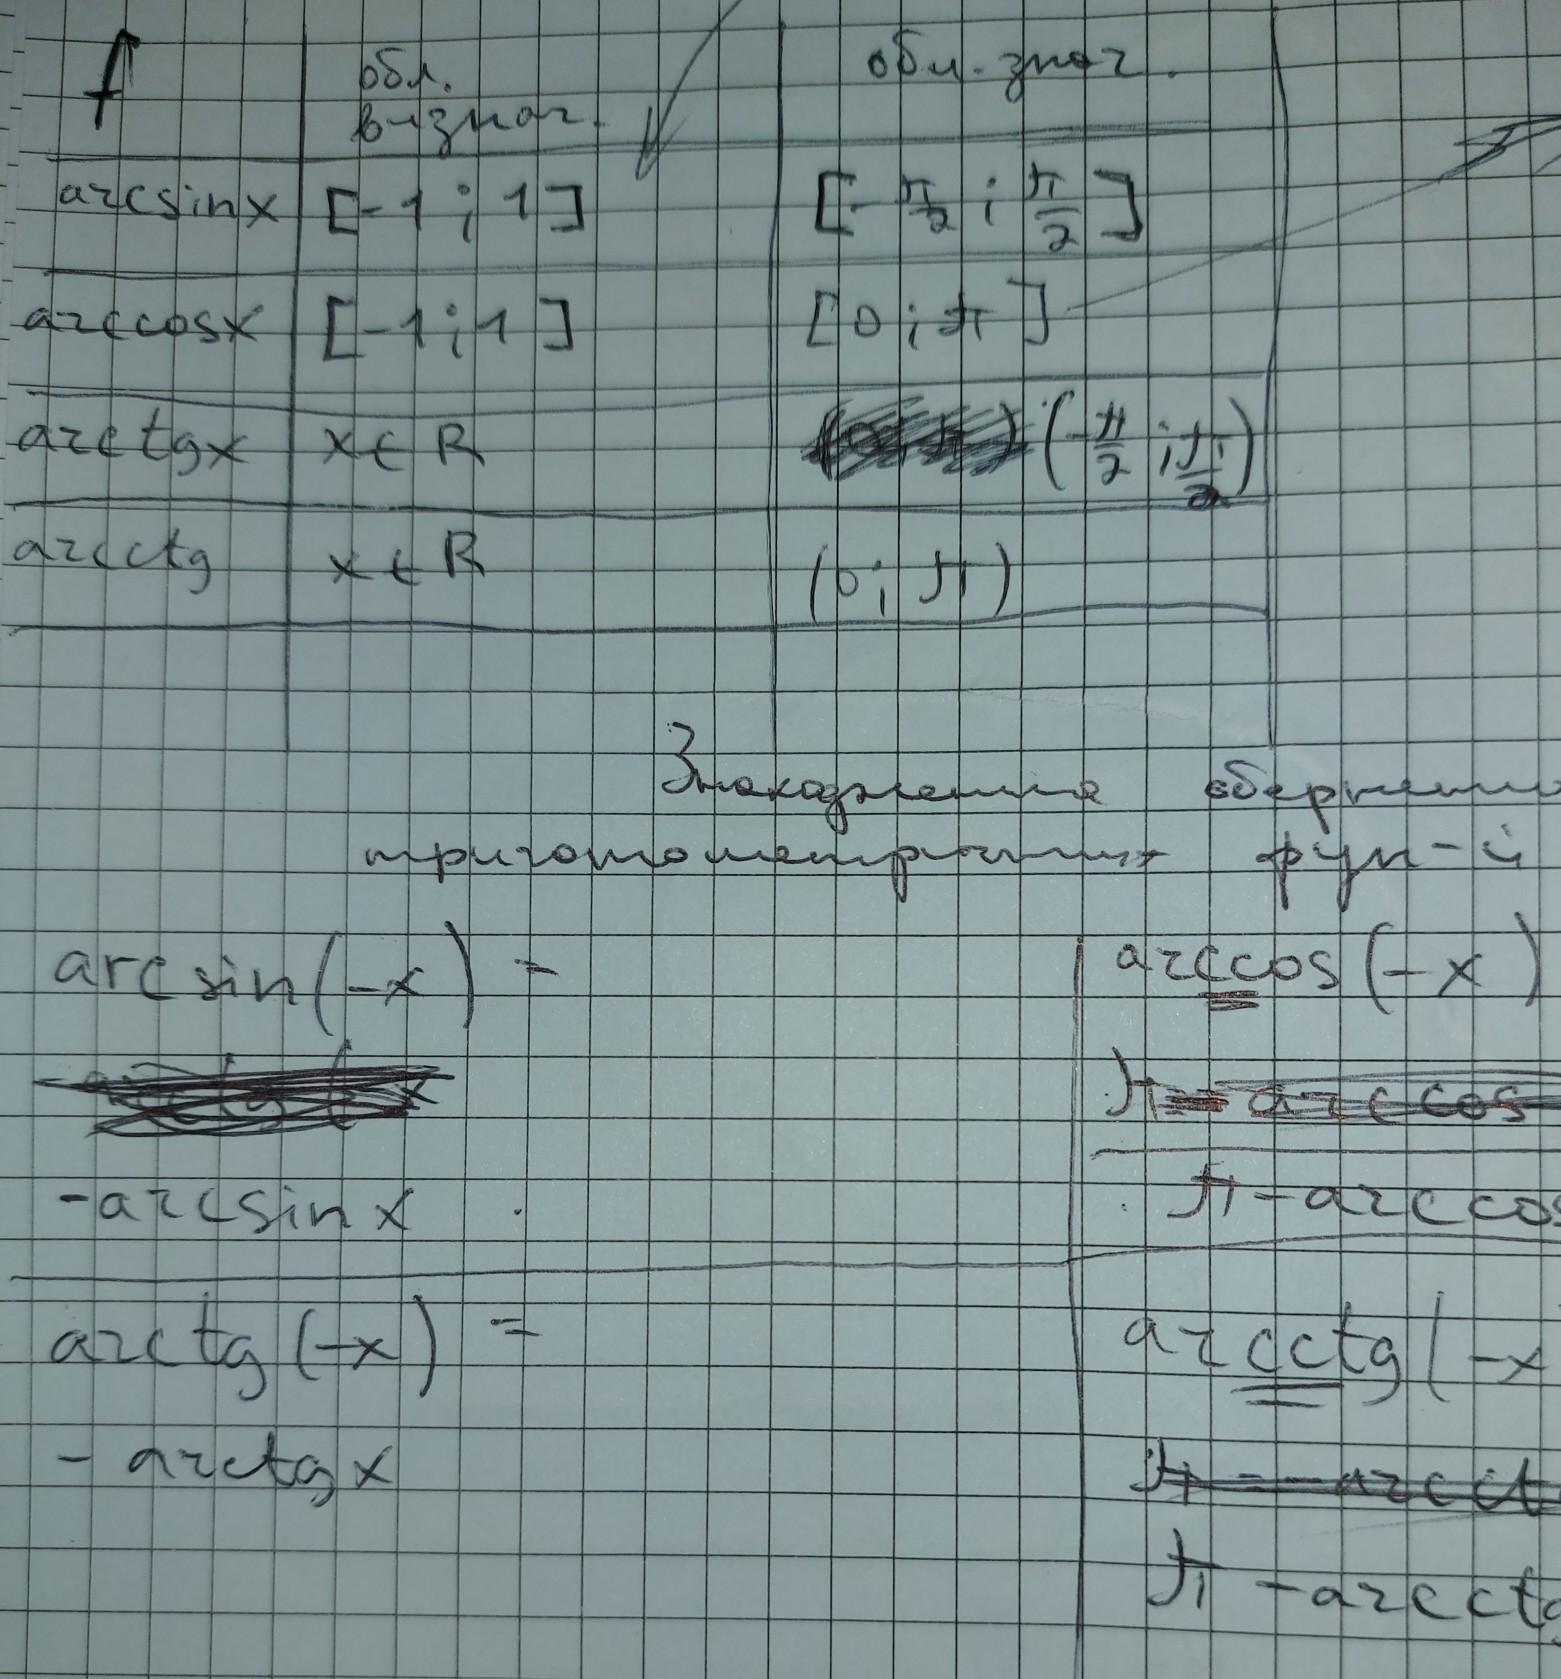 f обл. визнач. обл. знач.
arcsin x [-1 ; 1] [-π/2 ; π/2]
arccos x [-1 ; 1] [0 ; π]
arctg x x ∈ R (-π/2 ; π/2)
arcctg x ∈ R (0 ; π)
Знаходження обернени
тригонометричних фун-й
arcsin(-x) = arccos(-x)
π - arccos
-arcsin x π - arccos
arctg(-x) = arcctg(-x
- arctg x π - arcct
π - arcctg